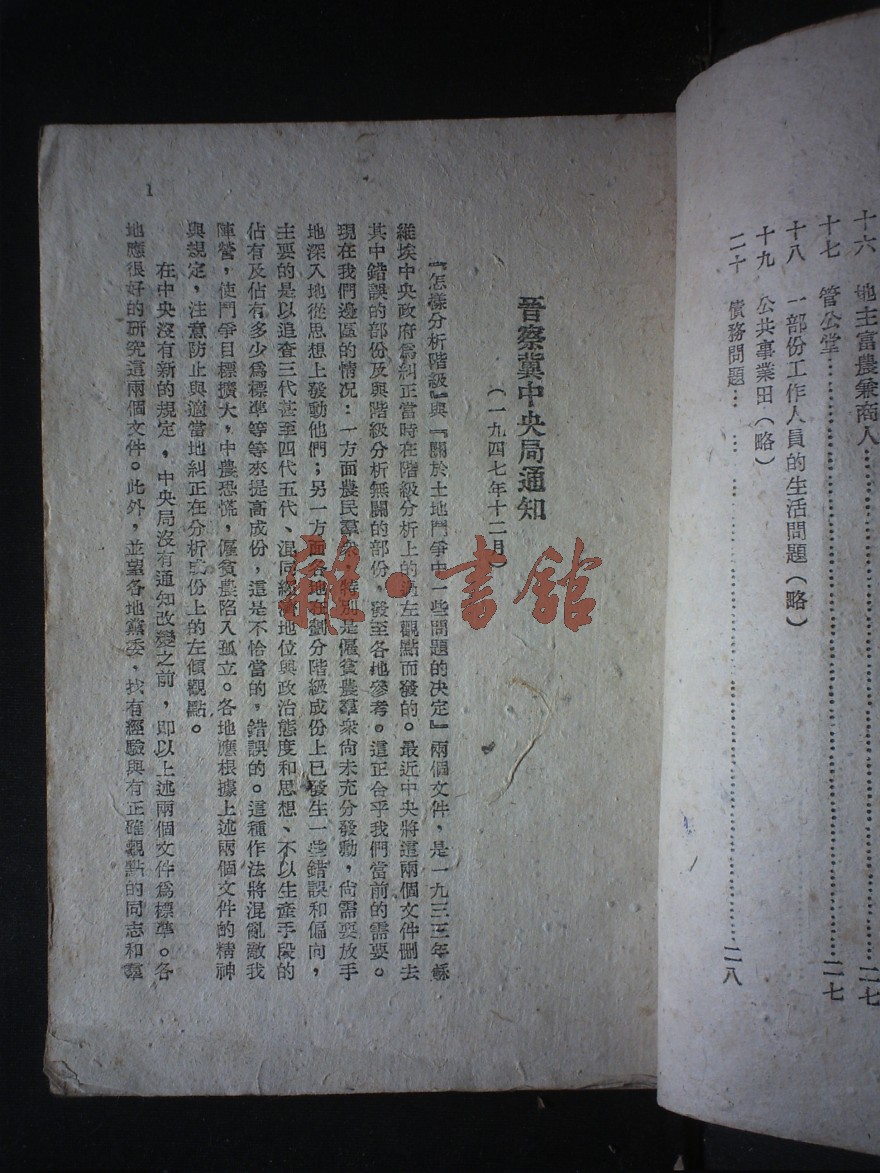 十六　地主富農兼商人……二七
十七　管公堂……二七
十八　一部份工作人員的生活問題（略）
十九　公共事業田（略）
二十　債務問題……二八
晉察冀中央局通知
（一九四七年十二月）
『怎樣分析階級』與『關於土地鬥爭中一些問題的决定』兩個文件，是一九三三年蘇
維埃中央政府爲糾正當時在階級分析上的過左觀點而發的。最近中央將這兩個文件刪去
其中錯誤的部份及與階級分析無關的部份，發至各地參考。這正合乎我們當前的需要。
現在我們邊區的情況：一方面農民羣衆，特別是僱貧農羣衆尚未充分發動，尚需要放手
地深入地從思想上發動他們；另一方面各地在劃分階級成份上已發生一些錯誤和偏向，
主要的是以追查三代甚至四代五代、混同經濟地位與政治態度和思想、不以生產手段的
佔有及佔有多少爲標準等等來提高成份，這是不恰當的，錯誤的。這種作法將混亂敵我
陣營，使鬥爭目標擴大，中農恐慌，僱貧農陷入孤立。各地應根據上述兩個文件的精神
與規定，注意防止與適當地糾正在分析成份上的左傾觀點。
在中央沒有新的規定，中央局沒有通知改變之前，即以上述兩個文件爲標準。各
地應很好的研究這兩個文件。此外，並望各地黨委、找有經驗與有正確觀點的同志和羣
1
雜·書舘